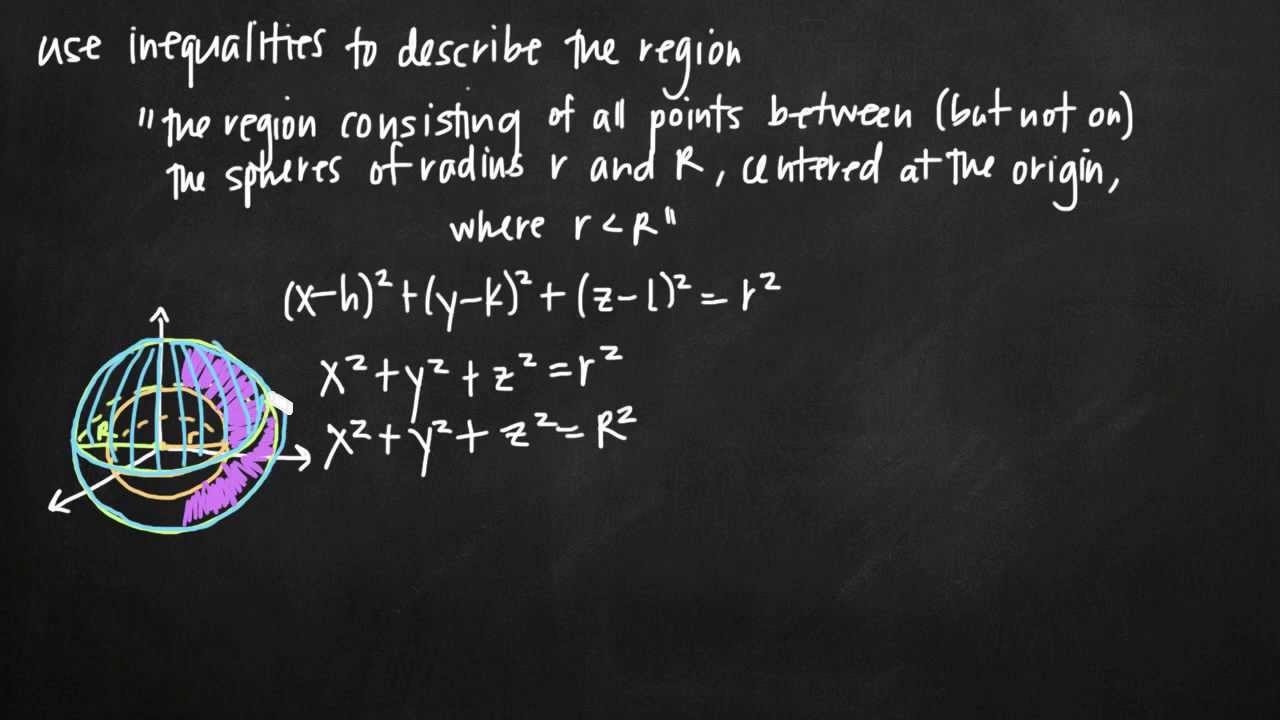 use inequalities to describe the region
"the region consisting of all points between (but not on)
the spheres of radius r and R, centered at the origin,
where r < R"
(x-h)² + (y-k)² + (z-l)² = r²
x² + y² + z² = r²
x² + y² + z² = R²
R r